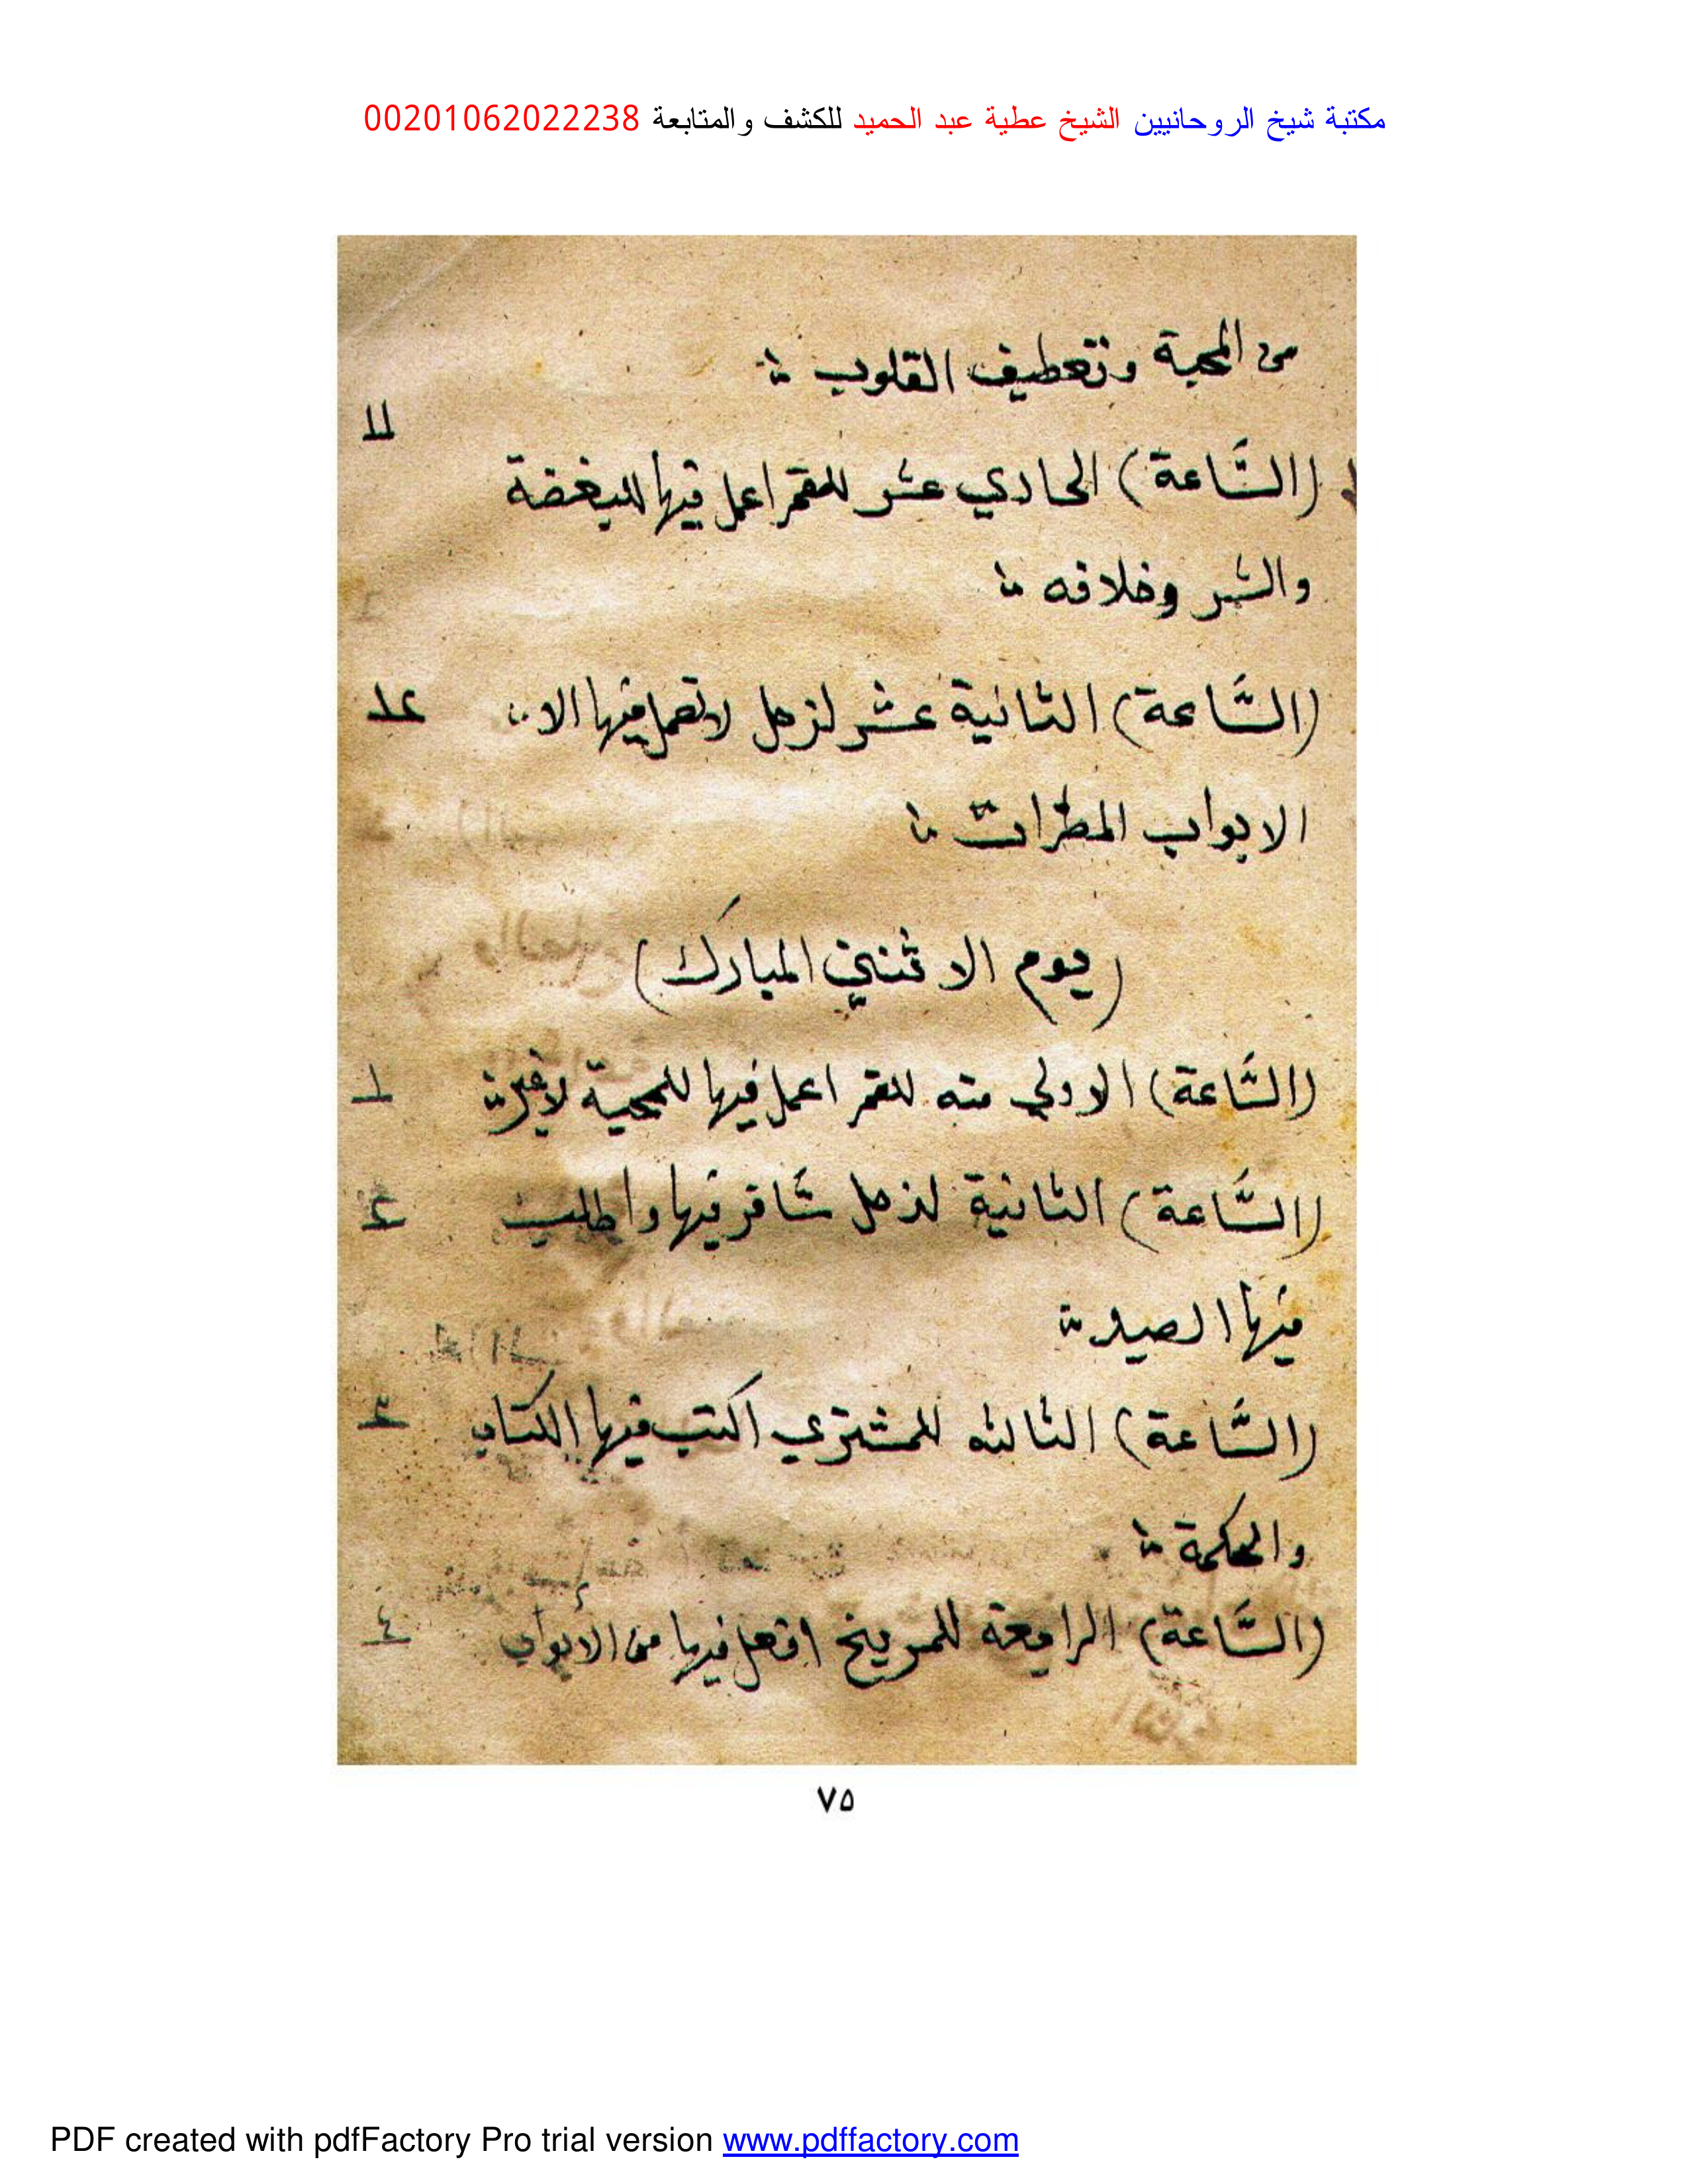 مكتبة شيخ الروحانيين الشيخ عطية عبد الحميد للكشف والمتابعة 00201062022238
من المحبة وتعطيف القلوب
١١
(السَّاعة) الحادي عشر للقمر اعمل فيها للبغضة
والشر وخلافه
(السَّاعة) الثانية عشر لزحل لا تعمل فيها الا
الابواب المضرات
(يوم الاثنين المبارك)
(السَّاعة) الاولي منه للقمر اعمل فيها للمحبة لا غير
١
(السَّاعة) الثانية لزحل سافر فيها واطلب
٢
فيها الصيد
(السَّاعة) الثالثه للمشتري اكتب فيها الكتاب
٣
والحكمة
(السَّاعة) الرابعة للمريخ افعل فيها من الأبواب
٤
٧٥
PDF created with pdfFactory Pro trial version www.pdffactory.com